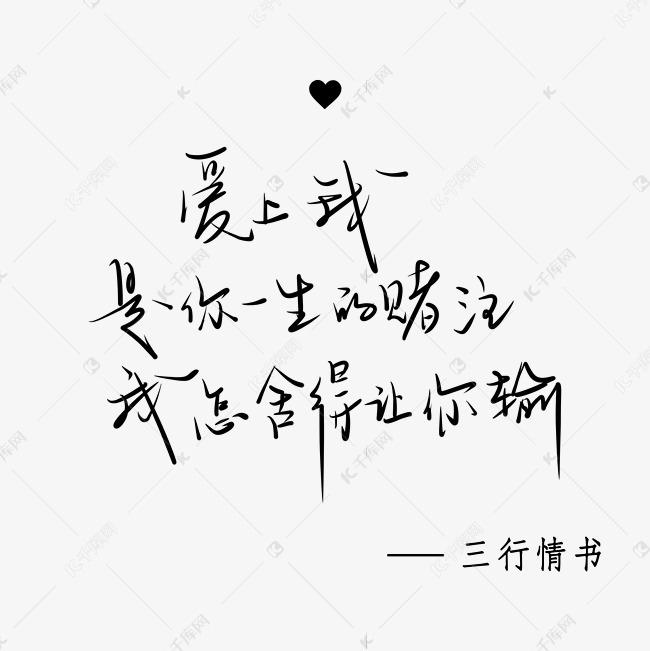 爱上我
是你一生的赌注
我怎舍得让你输
—— 三行情书
千库网